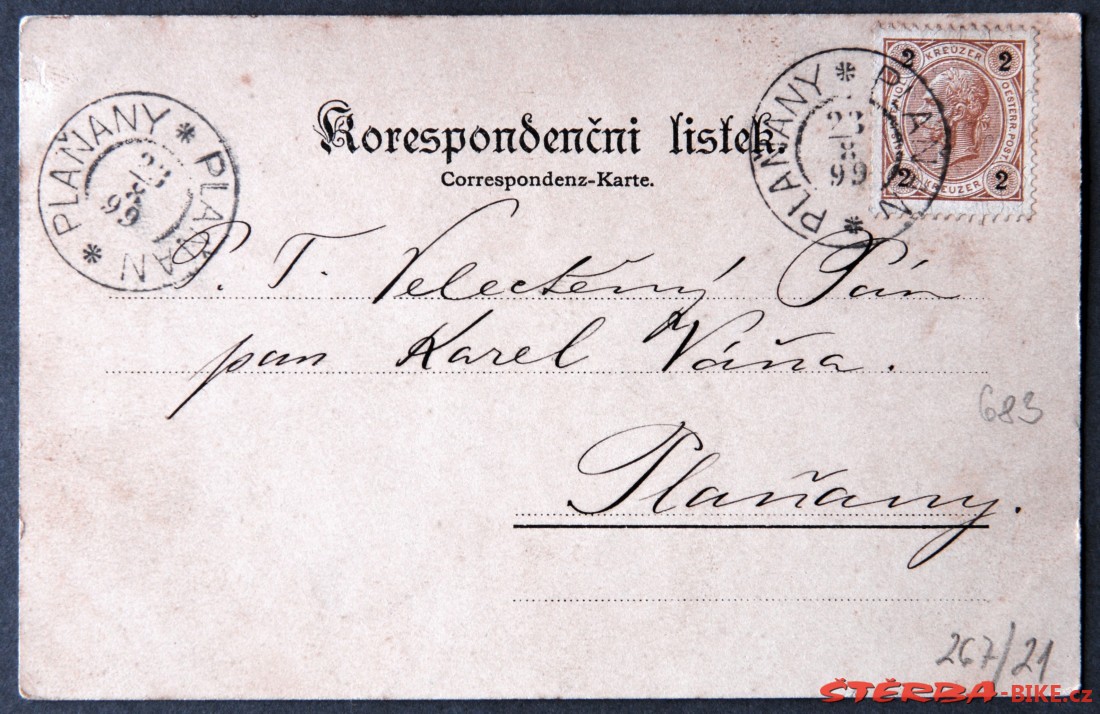 PLAŇANY * PLAŇAN *
23
8
99
PLAŇANY * PLAŇAN *
23
8
99
2 KREUZER 2
OESTERR. POST
2 KREUZER 2
Korespondenčni listek.
Correspondenz-Karte.
P. T. Velectěný Pán
pan Karel Váňa.
683
Plaňany.
267/21
ŠTĚRBA-BIKE.cz